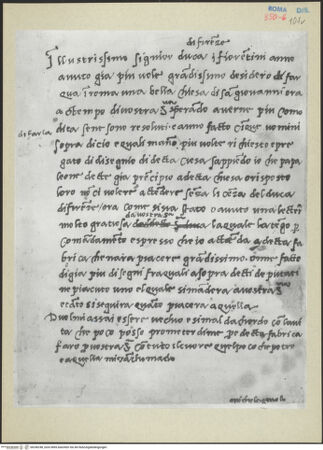 ROMA
Dis.
350-6
101v
di fire(n)ze
Illustrissimo signior duca i fiorentini anno
avuto gia piu volte gra(n)dissimo desidero di far
qua i(n) roma una bella chiesa di sa(n) giovanni ora
a te(m)po di vostra S(igno)ria sperando averne piu como
di far la
dita sene sono resoluti e anno facto cinque uomini
sopra di cio e quali m'anno piu volte richiesto e pre
gato di disegnio di decta chiesa sappiendo io che papa
leone dette gia pri(n)cipio a decta chiesa o risposto
loro no(n) ci volere actendere senza lice(n)za del duca
di fire(n)ze ora come si sia stato o avuto una lectera
da vostra S(igno)ria
molto gratiosa la quale la tengo p(er)
comandame(n)to espresso che io acte(n)da a decta fa
brica che n'ara piacere gra(n)dissimo one facto
di gia piu disegni fra quali a sopra decti deputati
n'e piaciuto uno el quale si ma(n)dera a vostra S(igno)ria
e ta(n)to si seguira qua(n)to piacera a quella
Duolmi assai essere vechio e si mal d'achordo co(n) la vi
ta che poco posso promectere di me p(er) decta fabrica
faro p(er) vostra S(igno)ria co(n) tucto il cuore quel poco che potro
e a quella mi rachoma(n)do
michelagniolo